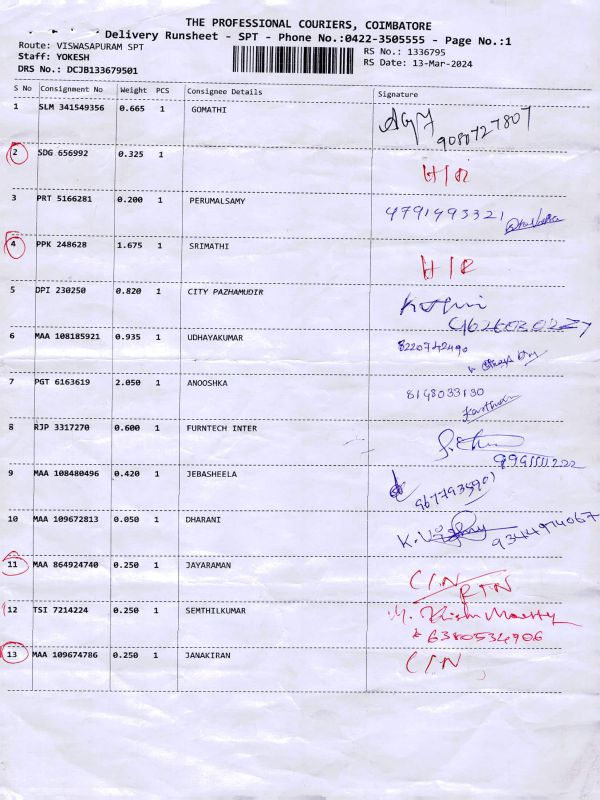 THE PROFESSIONAL COURIERS, COIMBATORE
Delivery Runsheet - SPT - Phone No.:0422-3505555 - Page No.:1
Route: VISWASAPURAM SPT RS No.: 1336795
Staff: YOKESH RS Date: 13-Mar-2024
DRS No.: DCJB133679501
S No Consignment No Weight PCS Consignee Details Signature
1 SLM 341549356 0.665 1 GOMATHI
9080727807
2 SDG 656992 0.325 1 H/R
3 PRT 5166281 0.200 1 PERUMALSAMY 4791493321
4 PPK 248628 1.675 1 SRIMATHI H/R
5 DPI 230250 0.820 1 CITY PAZHAMUDIR
6 MAA 108185921 0.935 1 UDHAYAKUMAR 8220742490
7 PGT 6163619 2.050 1 ANOOSHKA 8148033130
8 RJP 3317270 0.600 1 FURNTECH INTER
9 MAA 108480496 0.420 1 JEBASHEELA
10 MAA 109672813 0.050 1 DHARANI 9344914067
11 MAA 864924740 0.250 1 JAYARAMAN C/N
RTN
12 TSI 7214224 0.250 1 SEMTHILKUMAR
6380534906
13 MAA 109674786 0.250 1 JANAKIRAN C/N